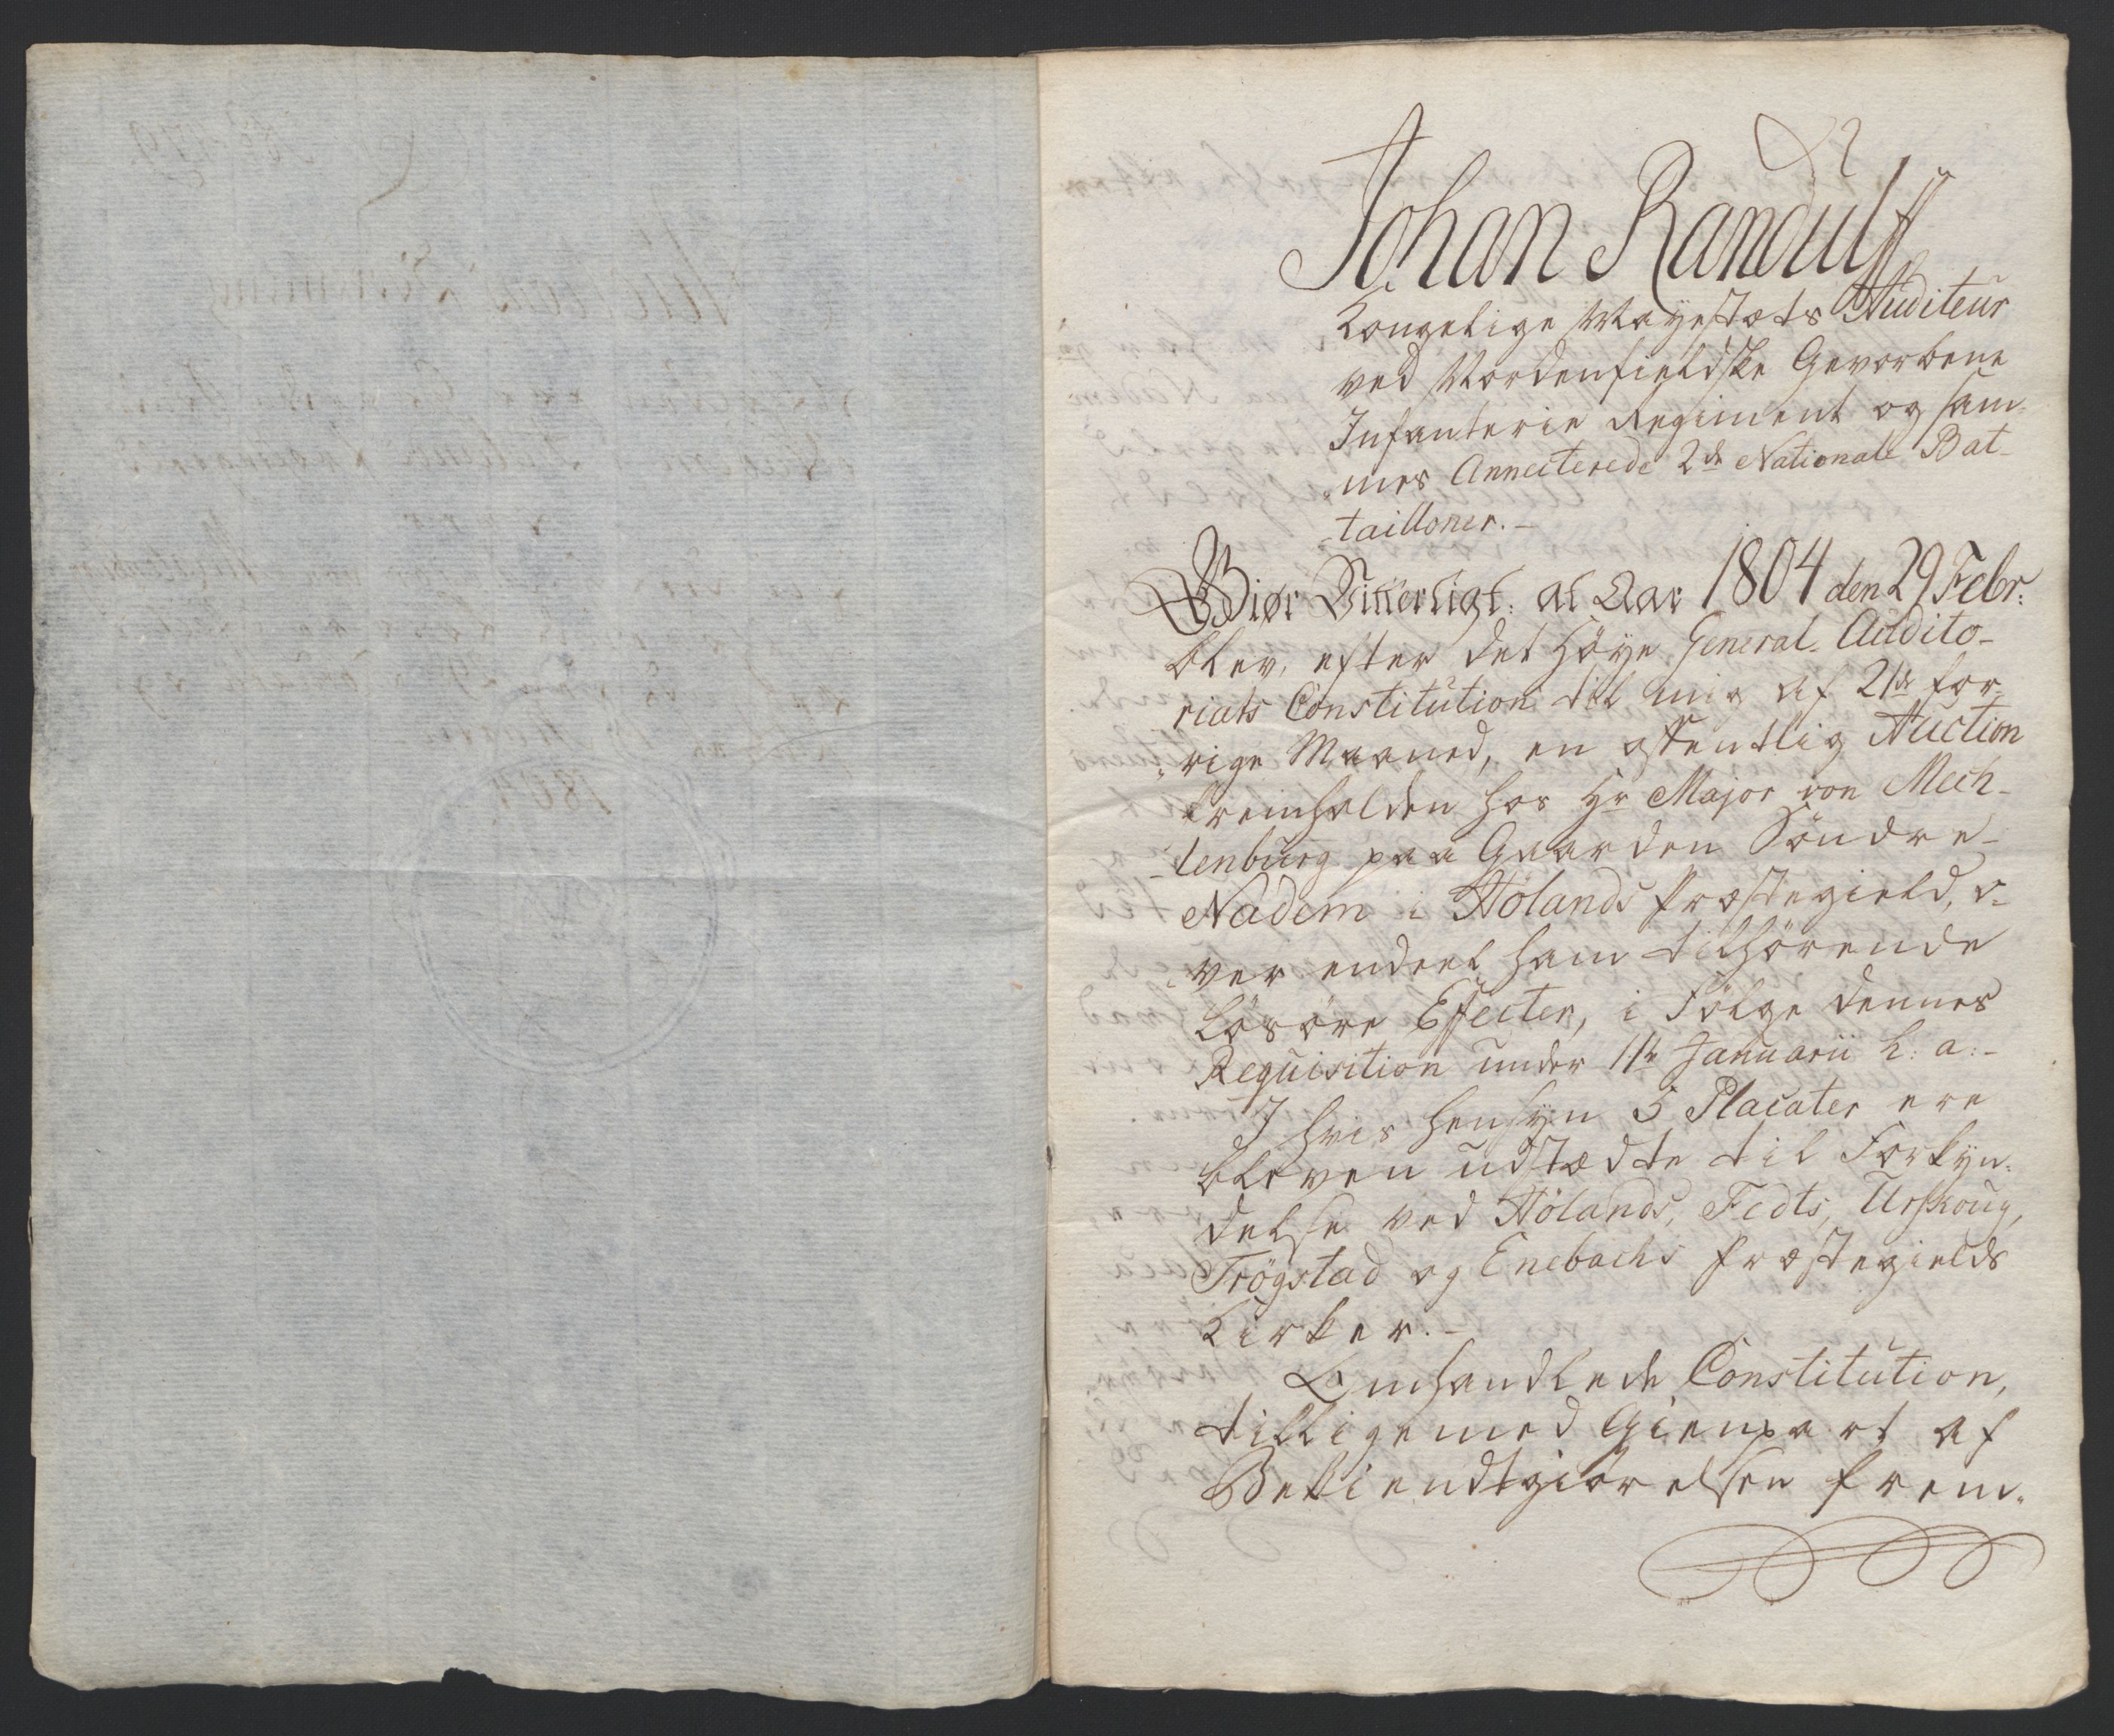 Johan Randulff
Kongelige Mayestæts Auditeur
ved Nordenfieldske Gevorbene
Infanterie Regiment og sam-
mes Annecterede 2de Nationale Bat-
tailloner.-
Giør Vitterligt: at Aar 1804 den 29 Febr:
blev, efter det høye General-Audito-
riats Constitution til mig af 21de for-
rige Maaned, en offentlig Auction
fremholden hos Hr Major von Mech-
lenburg paa Gaarden Søndre-
Nadem i Hølands Præstegield, o-
ver endeel ham tilhørende
Løsøre Effecter, i Følge dennes
Requisition under 11te Januarii h: a:-
I hvis Hensyn 5 Placater ere
bleven udstædte til Forkyn-
delse ved Hølands, Fedts, Urskoug,
Trøgstad og Enebachs Præstegields
Kirker.-
Omhandlede Constitution,
tilligemed Gienpart af
Bekiendtgiørelsen frem-